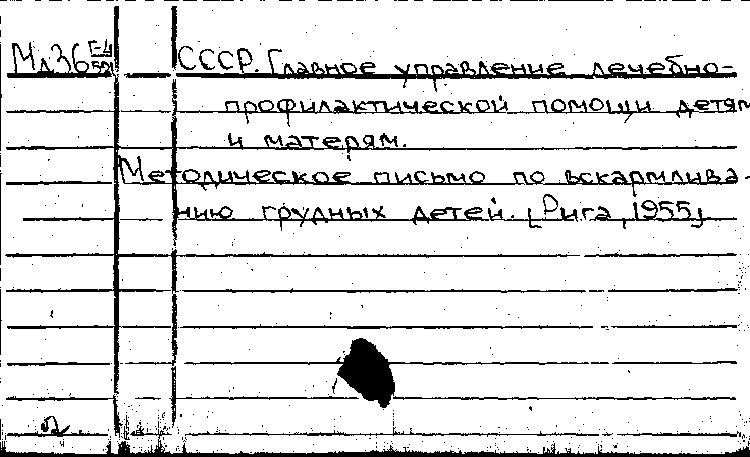 Мл36 Г-4/591 СССР. Главное управление лечебно-
профилактической помощи детям
и матерям.
Методическое письмо по вскармлива-
нию грудных детей. [Рига, 1955]
2.